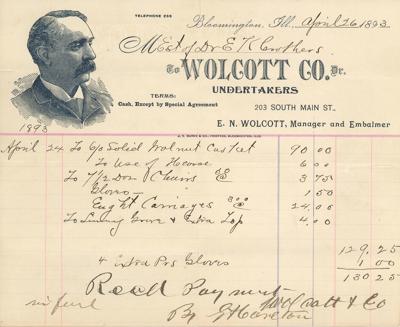 TELEPHONE 256
Bloomington, Ill. April 26 1893
M Est of Dr E K Crothers
To WOLCOTT CO. Dr.
UNDERTAKERS
TERMS:
Cash, Except by Special Agreement
203 SOUTH MAIN ST.,
E. N. WOLCOTT, Manager and Embalmer
1893
April 24 To 6/0 Solid Walnut Casket 90 00
To Use of Hearse 6 00
To 7 1/2 Doz Chairs 3 75
Gloves 1 50
Eight Carriages 24 00
To Lining Grave & Extra Top 4 00
129.25
4 Extra Prs Gloves 1 00
130 25
Recd Payment
in full Wolcott & Co
By